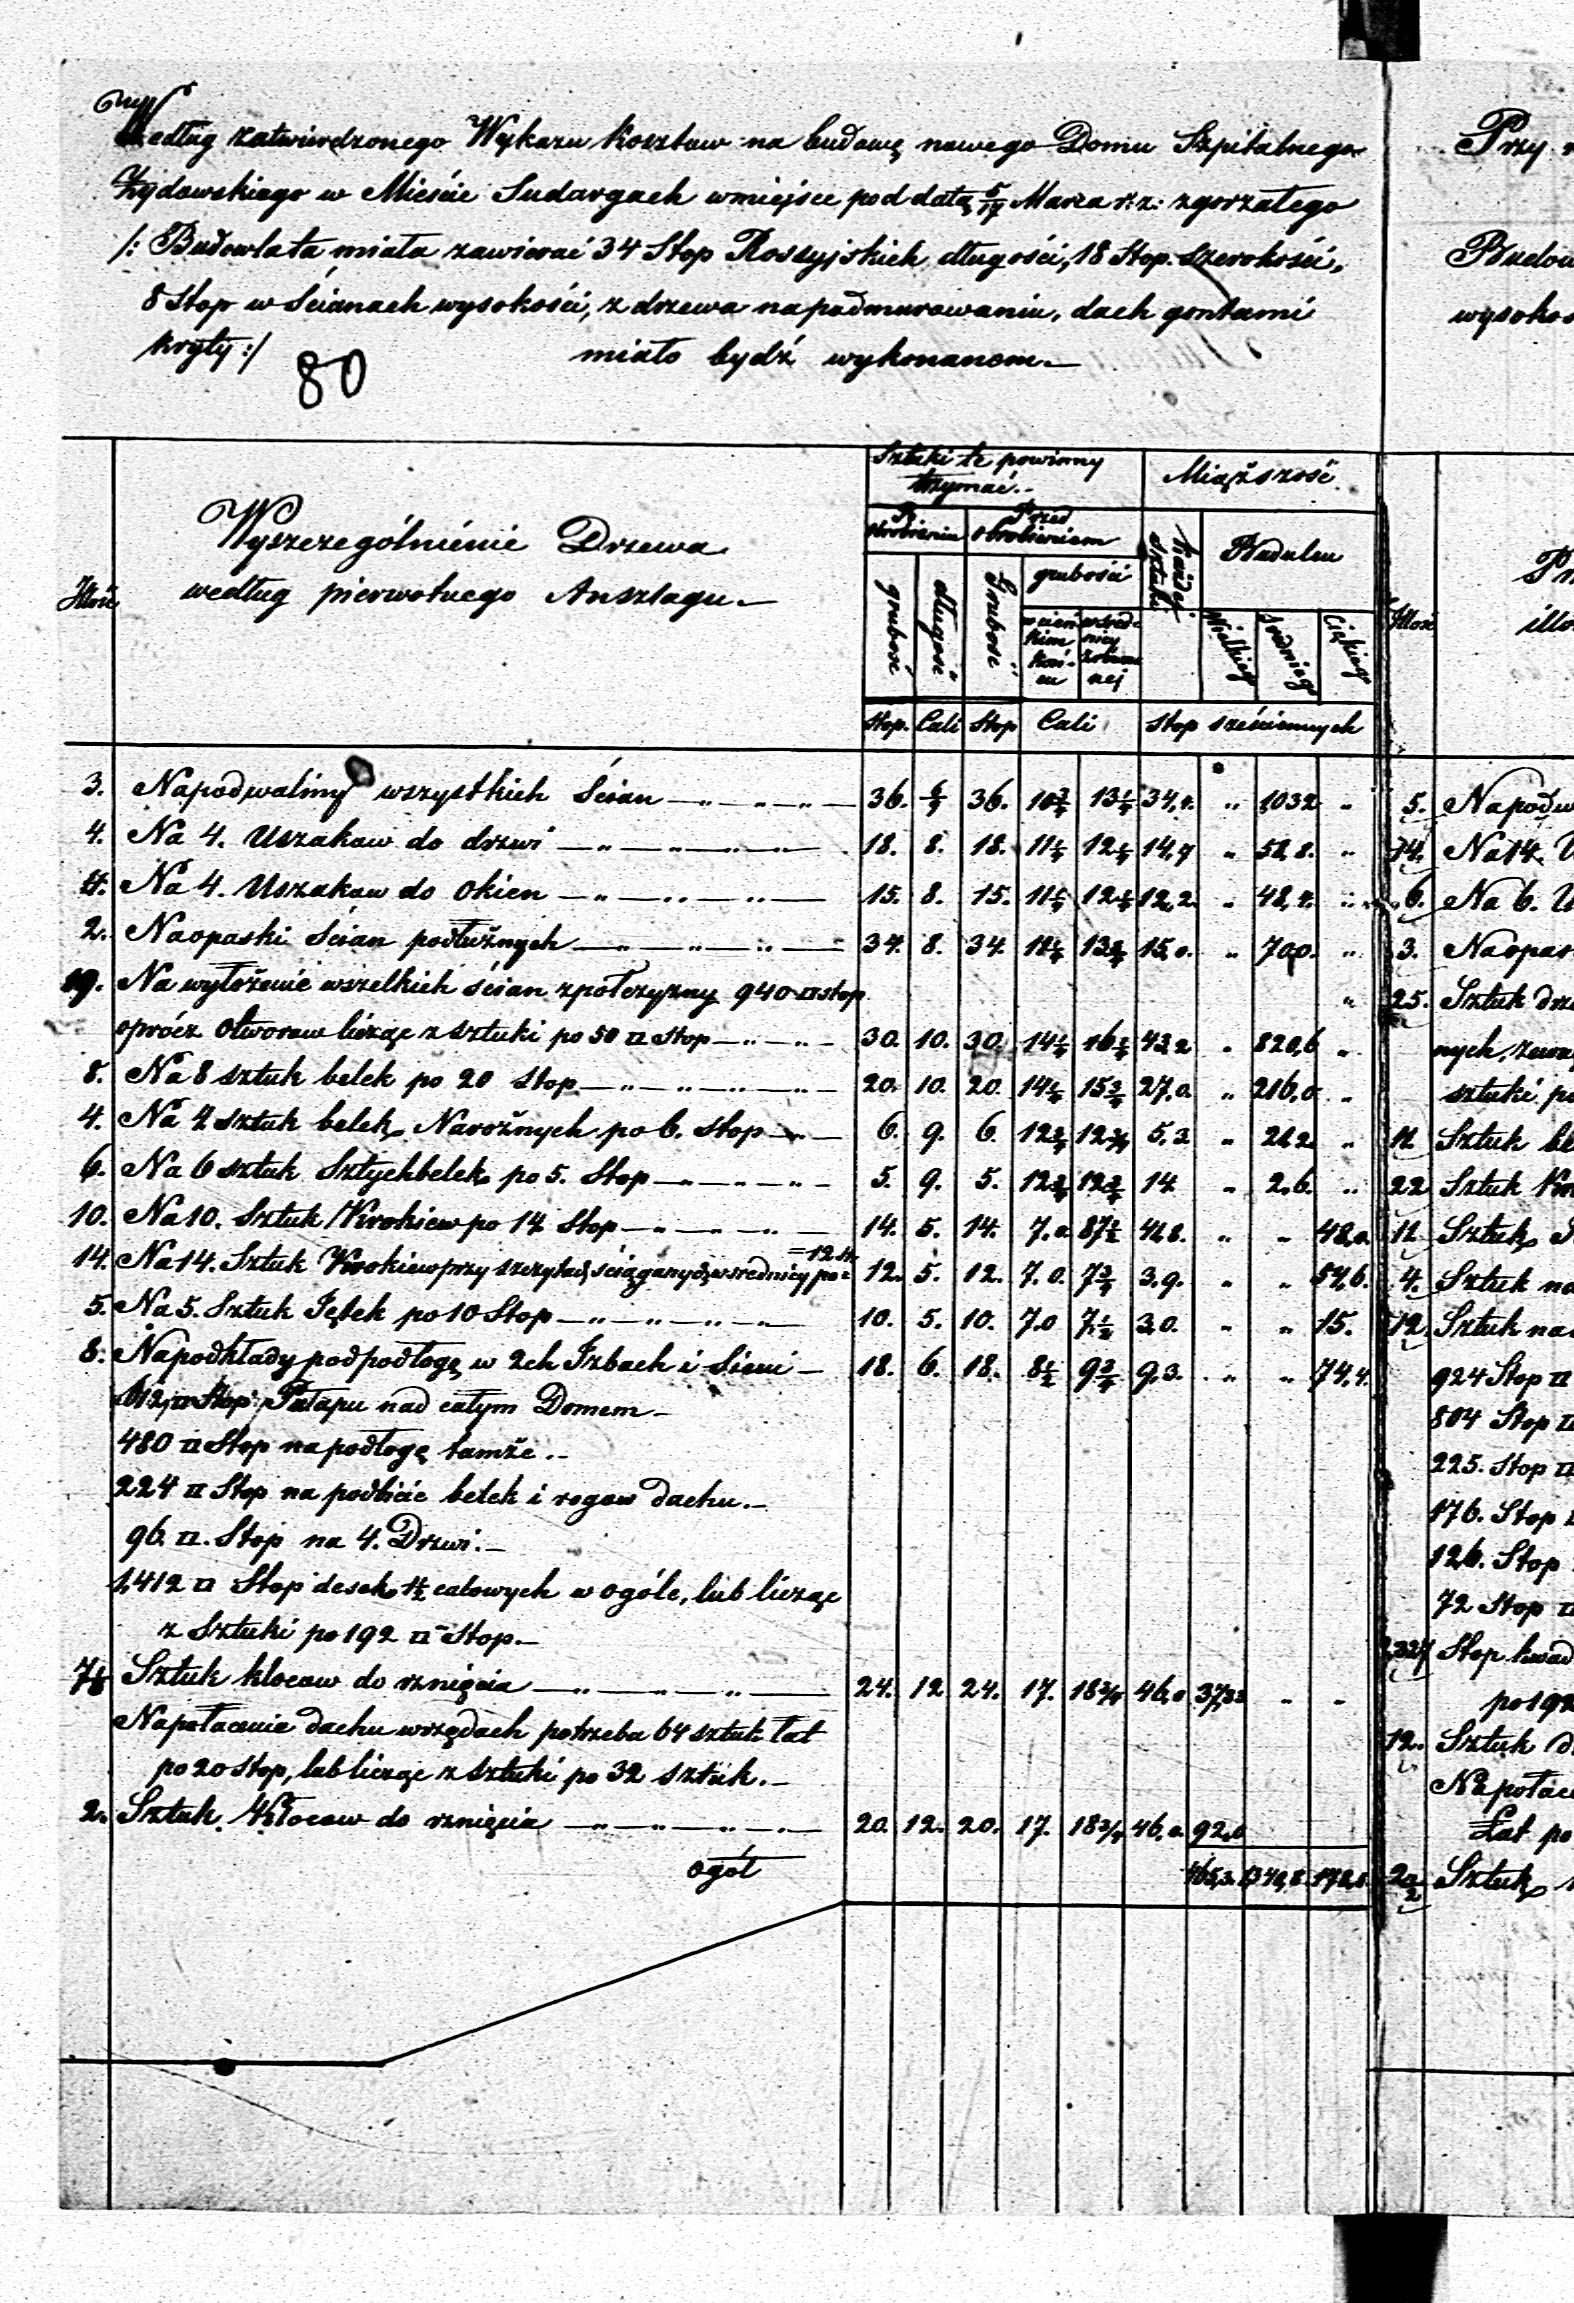 Według zatwierdzonego Wykazu Kosztow na budowę nowego Domu Szpitalnego
Żydowskiego w Mieście Sudargach w miejsce pod datą 5/17 Marca r: z: zgorzałego
/: Budowla ta miała zawierać 34 Stop Rossyjskich długości, 18 Stop. Szerokości,
8 Stop w Ścianach wysokości, z drzewa na podmurowaniu, dach gontami
kryty :/ miało bydź wykonanem.—
80
Przy
Budow
wysokoś
Sztuki te powinny
trzymać.
Miąższość
Illość
Wyszczególnienie Drzewa
według pierwotnego Anszlagu.—
Po obrobieniu
Przed obrobieniem
każdej sztuki
Budulcu
grubość
długość
Grubość
grubości
w cieńkim końcu
w średnicy
Wielkiego
Średniego
Illość
Stop. Cali Stop Cali Stop sześciennych
3. Na podwaliny wszystkich Ścian 36. 36. 10 3/4 13 1/4 34,4. " 103,2 "
4. Na 4. Uszakow do drzwi 18. 8. 18. 11 1/4 12 1/4 14,7 " 58,8. "
4. Na 4. Uszakow do Okien 15. 8. 15. 11 1/4 12 1/4 12,2. "
2. Na opaski Ścian podłużnych 34. 8. 34. 11 1/4 13 3/4 "
19. Na wyłożenie wszelkich ścian z połczyzny 940 □ stop
oprócz Otworow licząc z sztuki po 50 □ Stop 30. 10. 30. 14 1/4 16 1/4 43,2 " 820,6 "
8. Na 8 sztuk belek po 20 Stop 20. 10. 20. 14 1/4 15 3/4 27,0. " 216,0 "
4. Na 4 sztuk belek Narożnych po 6. Stop 6. 9. 6. 12 3/4 12 3/4 5,3 " 21,2 "
6. Na 6 sztuk Sztychbelek po 5. Stop 5. 9. 5. 12 3/4 12 3/4 "
10. Na 10. Sztuk Krokiew po 14 Stop 14. 5. 14. 7.0 " " 48,0.
14. Na 14. Sztuk Krokiew przy szczytach ściąganych w średnicy po = 12 st. 12. 5. 12. 7.0. 7 3/4 3,9. " " 54,6.
5. Na 5. Sztuk Jętek po 10 Stop 10. 5. 10. 7.0 7 1/2 3,0. " " 15.
8. Na podkłady pod podłogę w 2ch Izbach i Sieni 18. 6. 18. 8 1/2 9 3/4 9,3. " " 74,4.
612 □ Stop Pułapu nad całym Domem
480 □ Stop na podłogę tamże.—
224 □ Stop na podbicie belek i rogow dachu.—
96. □. Stop na 4. Drzwi.—
1,412 □ Stop desek 1 1/2 calowych w ogóle, lub licząc
z Sztuki po 192 □ Stop.—
Sztuk klocow do rznięcia 24. 12 24. 17. 18 3/4 46,0
Na połacenie dachu w rzędach potrzeba 64 sztuk łat
po 20 Stop, lub licząc z sztuki po 32 sztuk.—
2. Sztuk Kłocow do rznięcia 20. 12. 20. 17. 18 3/4 46,0. 92,0
ogół
5. Na podw
14. Na 14. U
6. Na 6. U
3. Na opas
25. Sztuk drz
nych,
sztuki po
Sztuk be
22 Sztuk Kro
Sztuk
4. Sztuk na
12. Sztuk na
924 Stop □
804 Stop □
225. Stop □
176. Stop
126. Stop
72 Stop □
Stop kwad
po 192
12. Sztuk
Na połac
Łat po
Sztuk